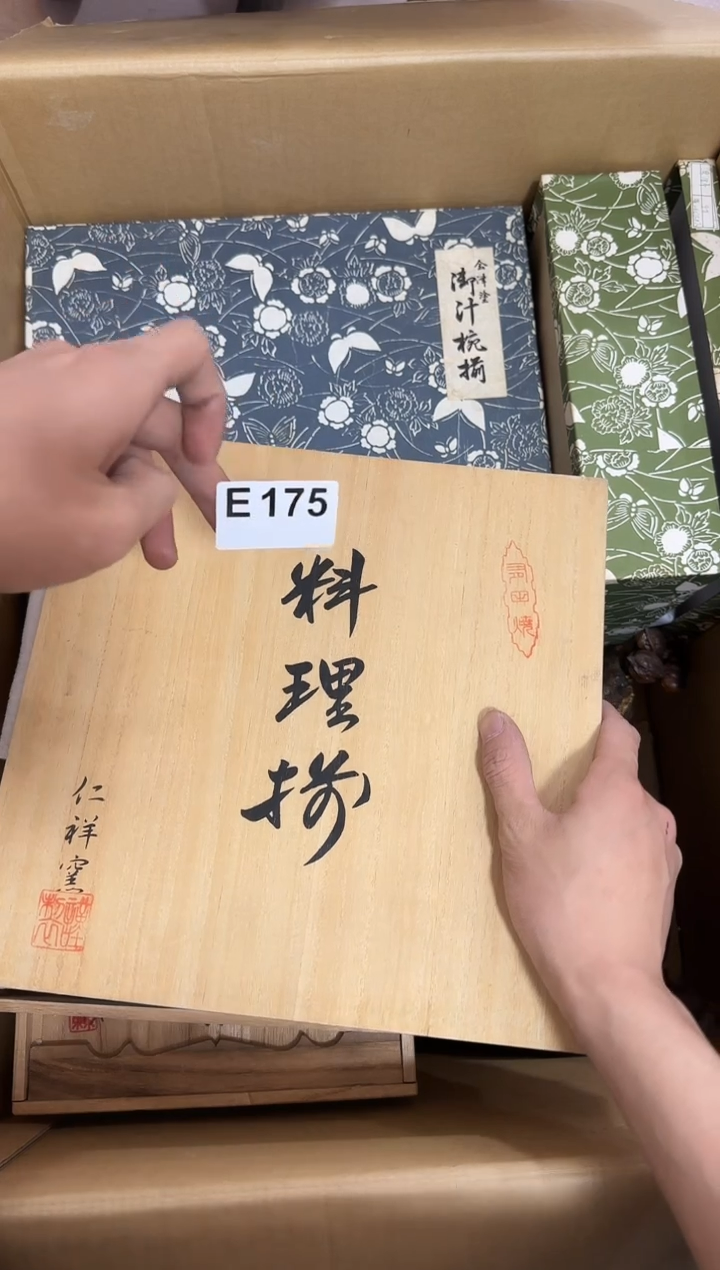 会津塗
御汁椀揃
E 175
料理揃
有田焼
仁祥窯